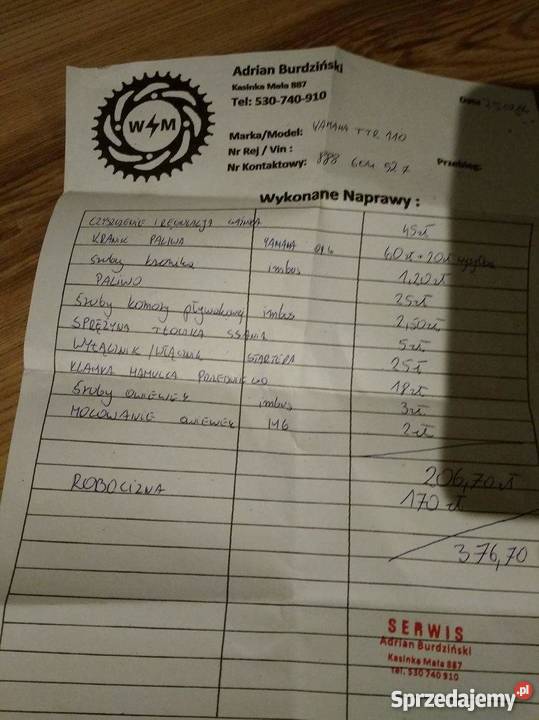 W M
Adrian Burdziński
Kasinka Mała 887
Tel: 530-740-910
Data
Marka/Model: YAMAHA TTR 110
Nr Rej / Vin :
Nr Kontaktowy: Przebieg:
Wykonane Naprawy :
CZYSZCZENIE I REGULACJA 45zł
KRANIK PALIWA YAMAHA 60zł + 20zł wysyłka
Śruby kranika imbus 1,20zł
PALIWO 25zł
Śruby komory pływakowej imbus 2,50zł
SPRĘŻYNA TŁOWKA SSANIA 5zł
WYŁĄCZNIK / WŁĄCZNIK STARTERA 25zł
KLAMKA HAMULCA PRZEDNIEGO 18zł
Śruby OWIEWEK imbus 3zł
MOCOWANIE OWIEWEK M6 2zł
206,70zł
ROBOCIZNA 170zł
376,70
SERWIS
Adrian Burdziński
Kasinka Mała 887
Tel. 530 740 910
Sprzedajemy.pl